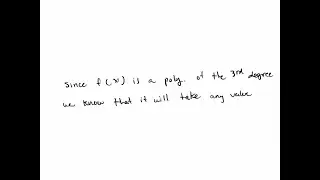 Since f(x) is a poly. of the 3rd degree
we know that it will take any value